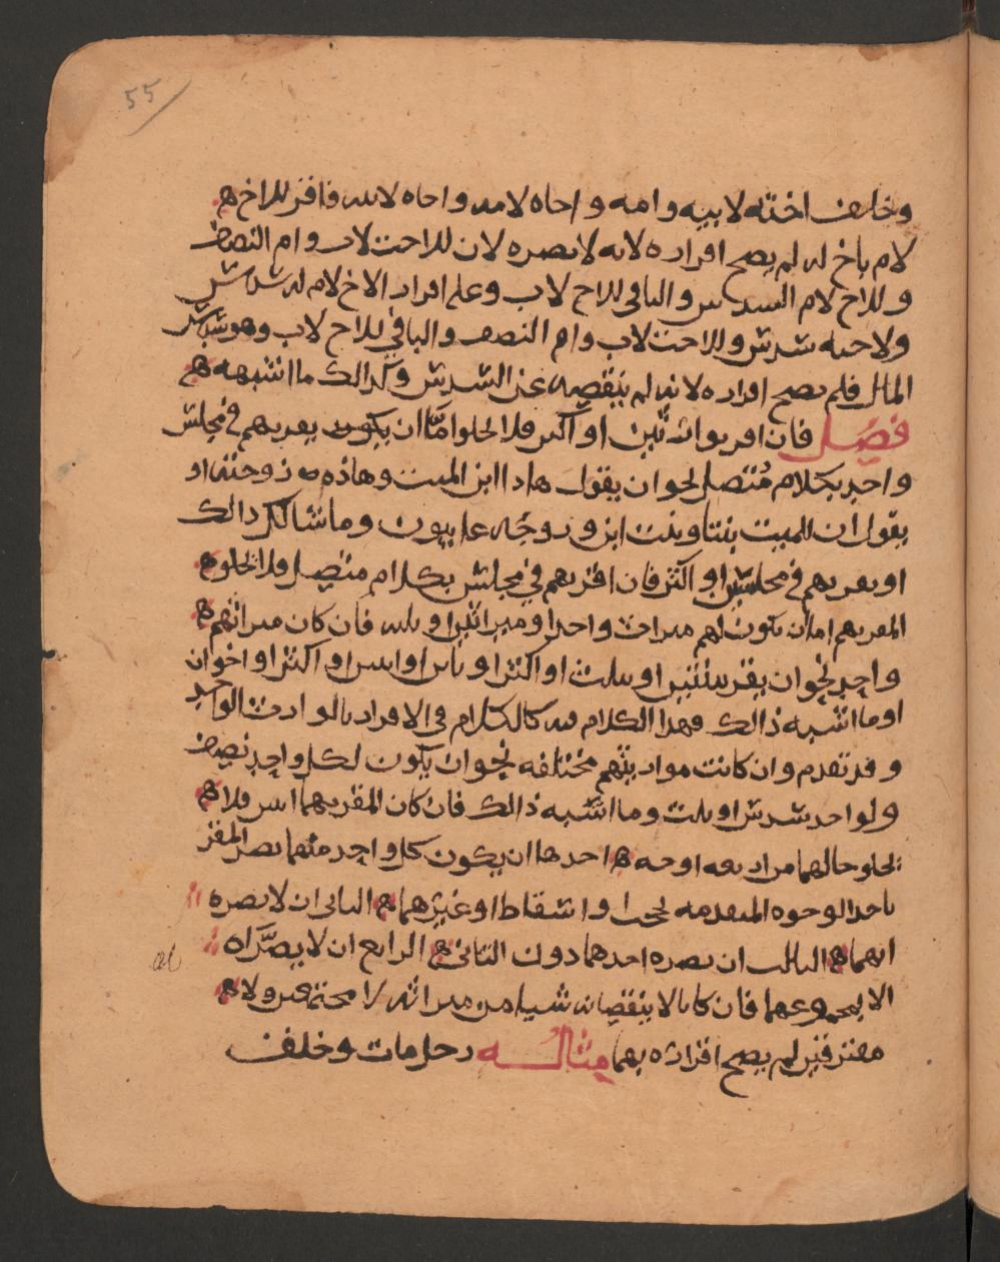 55
وخلف اخته لابيه وامه واخاه لامه واخاه لابيه فاقر للاخ
لام باخ له لم يصح اقراره لانه لا يضره لان للاخت لاب وام النصف
وللاخ لام السدس والباقي للاخ لاب وعلى اقرار الاخ لام له سدس
ولاخيه سدس وللاخت لاب وام النصف والباقي للاخ لاب وهو سدس
المال فلم يصح اقراره لانه لم ينقصه عن السدس وكذالك ما اشبهه
فصل فان اقر بوارثين او اكثر فلا يخلوا اما ان يكون يقر بهم في مجلس
واحد بكلام متصل نحو ان يقول هاذا ابن الميت وهاذه زوجته او
يقول ان للميت بنتا وبنت ابن وزوجه وما شاكل ذالك
او يقر بهم في مجلسين او اكثر فان اقر بهم في مجلس بكلام متصل فلا يخلو
المقر بهم اما ان يكون لهم ميراث واحد او ميراثين او ثلثه فان كان ميراثهم
واحد نحو ان يقر ببنتين او بثلث او اكثر او بابن او ابنين او اكثر او اخوان
او ما اشبه ذالك فهذا الكلام فيه كالكلام في الاقرار بالوارث الواحد
وقد تقدم وان كانت مواريثهم مختلفه نحو ان يكون لكل واحد نصف
ولواحد سدس او ثلث وما اشبه ذالك فان كان المقر بهما اثنين فلا
يخلو حالهما من اربعه اوجه احدها ان يكون كل واحد منهما يضر المقر
باحد الوجوه المتقدمه بحجب او اسقاط او غيرهما الثاني ان لا يضره
ايهما الثالث ان يضره احدهما دون الثاني الرابع ان لا يضراه
الا بمجموعهما فان كانا لا ينقصانه شيا من ميراثه لا مجتمعين ولا
مفترقين لم يصح اقراره بهما مثاله رجل مات وخلف